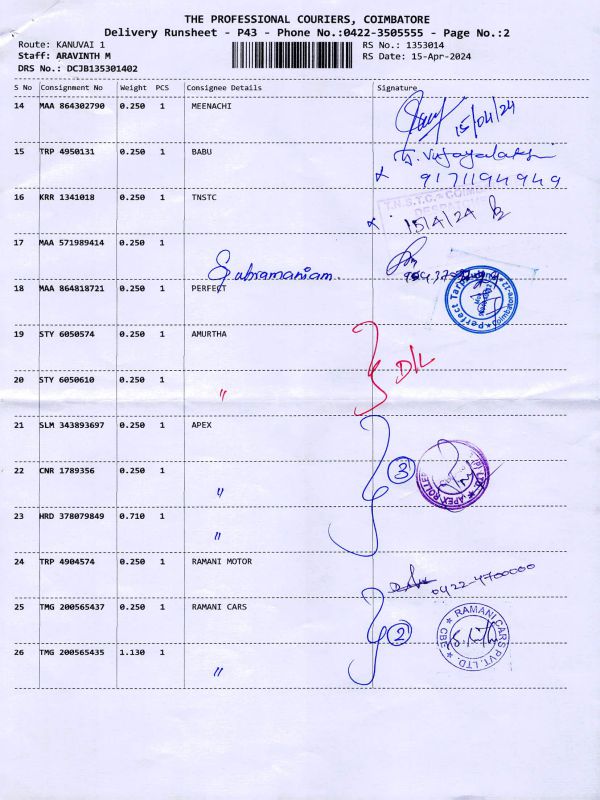 THE PROFESSIONAL COURIERS, COIMBATORE
Delivery Runsheet - P43 - Phone No.:0422-3505555 - Page No.:2
Route: KANUVAI 1
RS No.: 1353014
Staff: ARAVINTH M
RS Date: 15-Apr-2024
DRS No.: DCJB135301402
S No Consignment No Weight PCS Consignee Details Signature
14 MAA 864302790 0.250 1 MEENACHI
15/04/24
15 TRP 4950131 0.250 1 BABU
9171194949
16 KRR 1341018 0.250 1 TNSTC
15/4/24
17 MAA 571989414 0.250 1
Subramaniam
18 MAA 864818721 0.250 1 PERFECT
Perfect Coimbatore
19 STY 6050574 0.250 1 AMURTHA
D/L
20 STY 6050610 0.250 1
"
21 SLM 343893697 0.250 1 APEX
22 CNR 1789356 0.250 1
"
3
APEX
23 HRD 378079849 0.710 1
"
24 TRP 4904574 0.250 1 RAMANI MOTOR
0422-4700000
25 TMG 200565437 0.250 1 RAMANI CARS
2
RAMANI CARS PVT. LTD. CBE
26 TMG 200565435 1.130 1
"